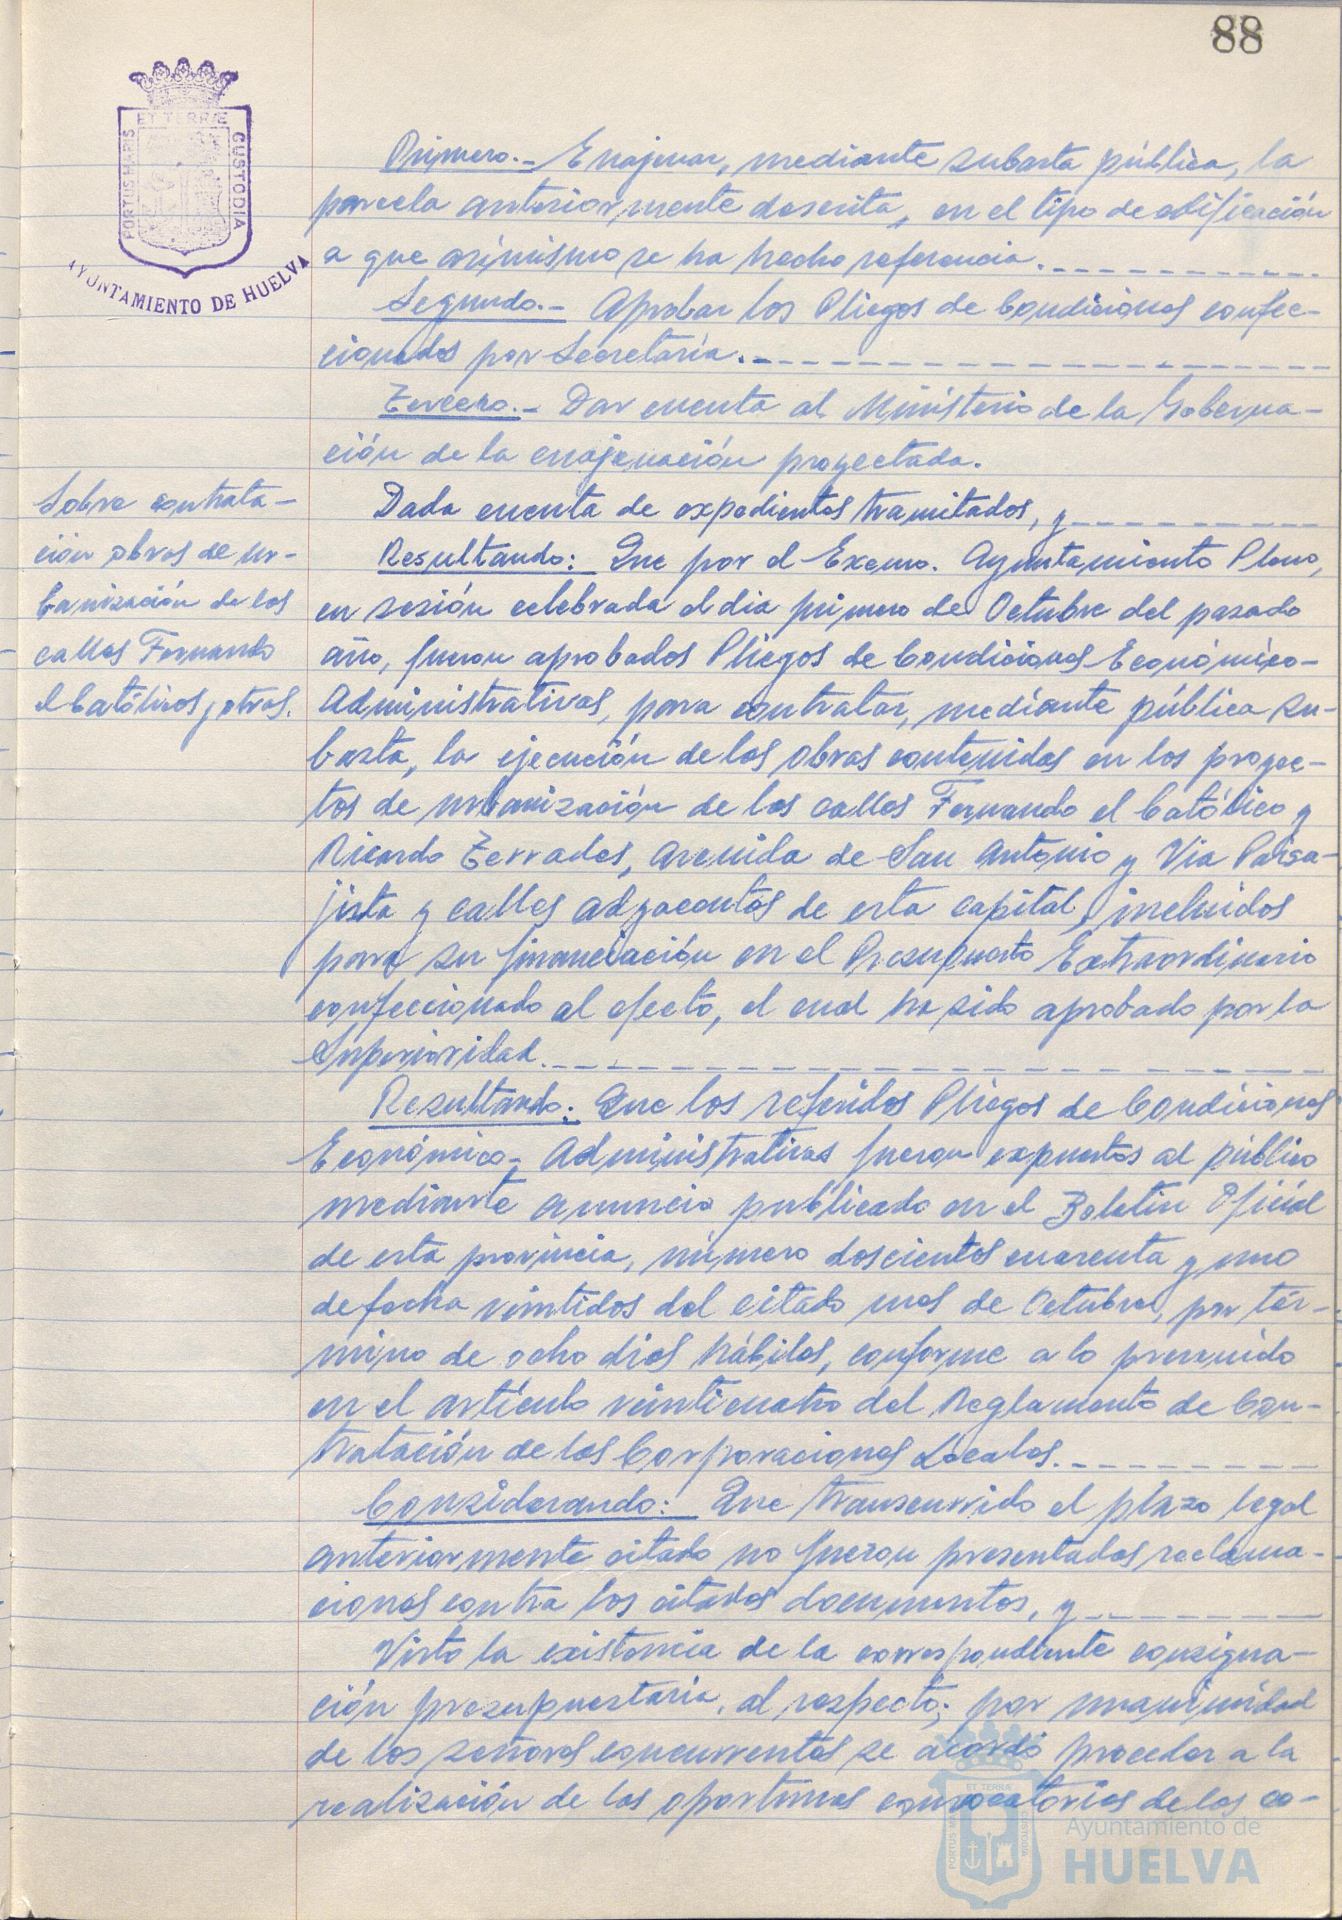 88
ET TERRÆ
PORTUS MARIS
CUSTODIA
AYUNTAMIENTO DE HUELVA
Primero.- Enajenar, mediante subasta pública, la
parcela anteriormente descrita, en el tipo de edificación
a que asimismo se ha hecho referencia.
Segundo.- Aprobar los Pliegos de Condiciones confec-
cionados por Secretaría.
Tercero.- Dar cuenta al Ministerio de la Goberna-
ción de la enajenación proyectada.
Sobre contrata-
ción obras de ur-
banización de las
calles Fernando
el Católico y otras.
Dada cuenta de expedientes tramitados, y
Resultando: Que por el Excmo. Ayuntamiento Pleno,
en sesión celebrada el dia primero de Octubre del pasado
año, fueron aprobados Pliegos de Condiciones Económico-
Administrativas, para contratar, mediante pública su-
basta, la ejecución de las obras contenidas en los proyec-
tos de urbanización de las calles Fernando el Católico y
Ricardo Terrades, Avenida de San Antonio y Via Paisa-
jista y calles adyacentes de esta capital, incluidos
para su financiación en el Presupuesto Extraordinario
confeccionado al efecto, el cual ha sido aprobado por la
Superioridad.
Resultando: Que los referidos Pliegos de Condiciones
Económico-Administrativas fueron expuestos al público
mediante anuncio publicado en el Boletin Oficial
de esta provincia, número doscientos cuarenta y uno
de fecha veintidos del citado mes de Octubre, por tér-
mino de ocho dias hábiles, conforme a lo prevenido
en el artículo veinticuatro del Reglamento de Con-
tratación de las Corporaciones Locales.
Considerando: Que transcurrido el plazo legal
anteriormente citado no fueron presentadas reclama-
ciones contra los citados documentos, y
Visto la existencia de la correspondiente consigna-
ción presupuestaria, al respecto; por unanimidad
de los señores concurrentes se acordó proceder a la
realización de las oportunas convocatorias de las co-
ET TERRÆ
PORTUS MARIS
CUSTODIA
Ayuntamiento de
HUELVA